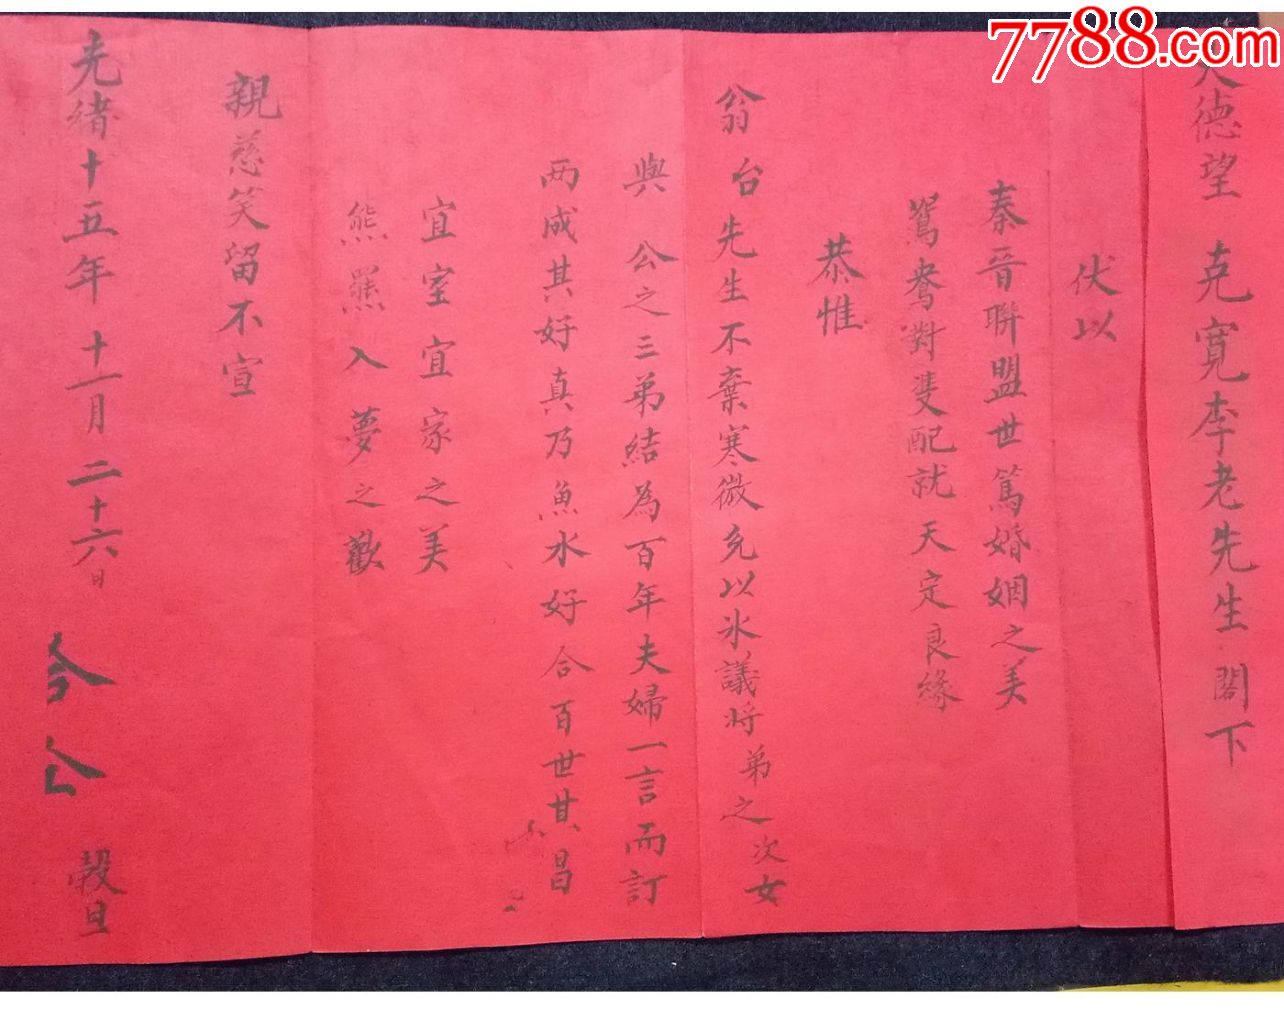 7788.com
大德望 克寬李老先生 閣下
伏以
秦晉聯盟世篤婚姻之美
鴛鴦對雙配就天定良緣
恭惟
翁台先生不棄寒微允以氷議將弟之次女
與 公之三弟結為百年夫婦一言而訂
兩成其好真乃魚水好合百世其昌
宜室宜家之美
熊羆入夢之歡
親慈笑留不宣
光緒十五年十一月二十六日 穀旦